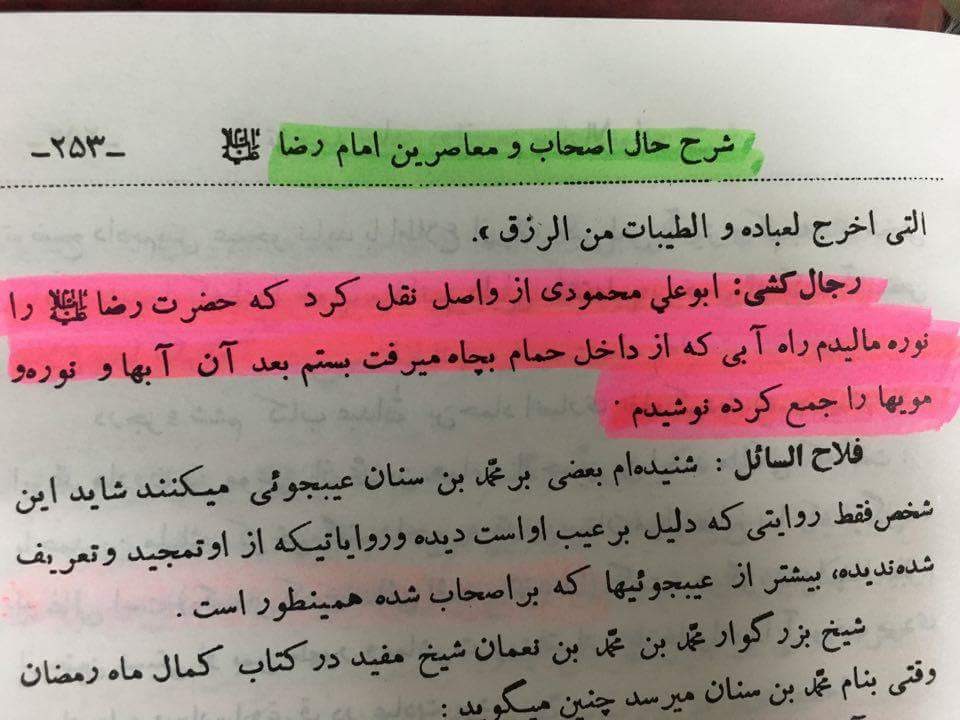 شرح حال اصحاب و معاصرین امام رضا علیه‌السلام -۲۵۳-
التی اخرج لعباده و الطیبات من الرزق ».
رجال کشی: ابوعلي محمودی از واصل نقل کرد که حضرت رضا علیه‌السلام را
نوره مالیدم راه آبی که از داخل حمام بچاه میرفت بستم بعد آن آبها و نوره‌و
مویها را جمع کرده نوشیدم .
فلاح السائل : شنیده‌ام بعضی بر محمّد بن سنان عیبجوئی میکنند شاید این
شخص فقط روایتی که دلیل بر عیب اواست دیده وروایاتیکه از اوتمجید وتعریف
شده‌ندیده، بیشتر از عیبجوئیها که براصحاب شده همینطور است .
شیخ بزرگوار محمّد بن محمّد بن نعمان شیخ مفید در کتاب کمال ماه رمضان
وقتی بنام محمّد بن سنان میرسد چنین میگوید :